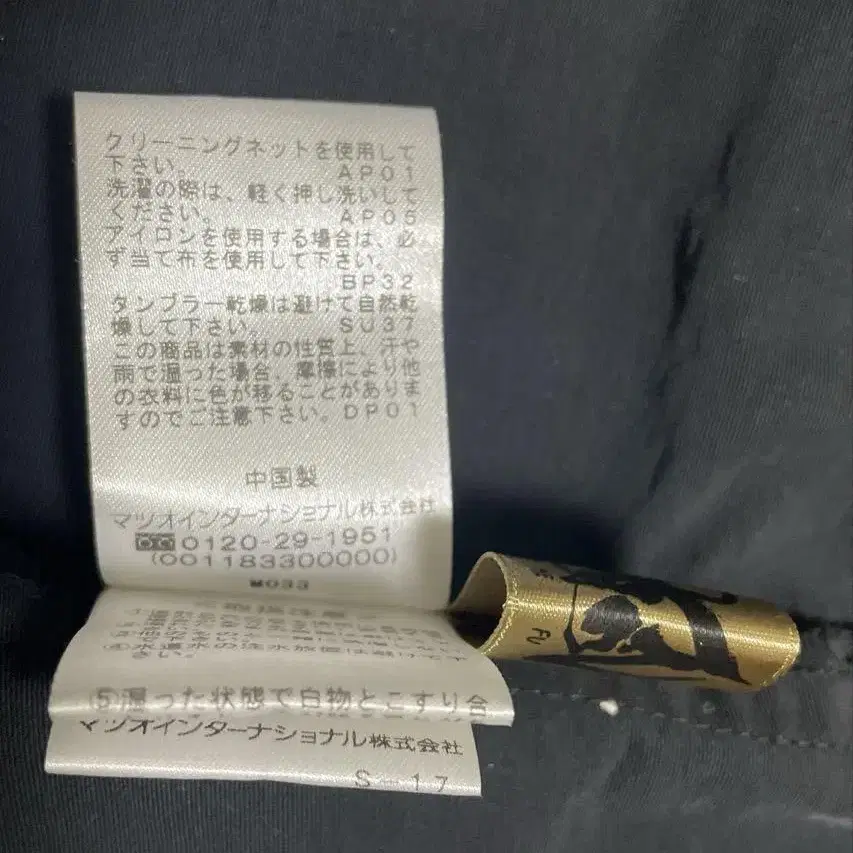 クリーニングネットを使用して
下さい。 AP01
洗濯の際は、軽く押し洗いして
ください。 AP05
アイロンを使用する場合は、必
ず当て布を使用して下さい。
BP32
タンブラー乾燥は避けて自然乾
燥して下さい。 SU37
この商品は素材の性質上、汗や
雨で湿った場合、摩擦により他
の衣料に色が移ることがありま
すのでご注意下さい。DP01
中国製
マツオインターナショナル株式会社
0120-29-1951
(001183300000)
M033
⑤湿った状態で白物とこすり合
マツオインターナショナル株式会社
S-17
FU